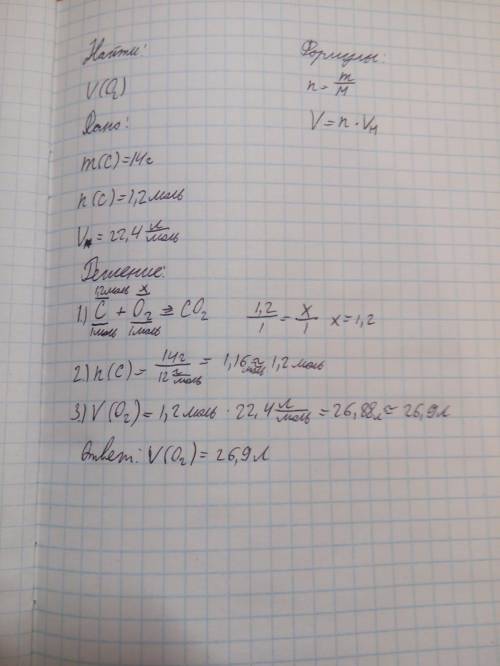 Найти:
V(O₂)
Дано:
m(C)=14г
n(C)=1,2 моль
Vм=22,4 л/моль
Формулы:
n=m/M
V=n·Vм
Решение:
1,2моль x
1) C + O₂ = CO₂ 1,2/1 = x/1 x=1,2
1моль 1моль
2) n(C)= 14г/12 г/моль = 1,16 ≈ 1,2 моль
3) V(O₂)=1,2моль · 22,4 л/моль = 26,88л ≈ 26,9л
Ответ: V(O₂)=26,9л